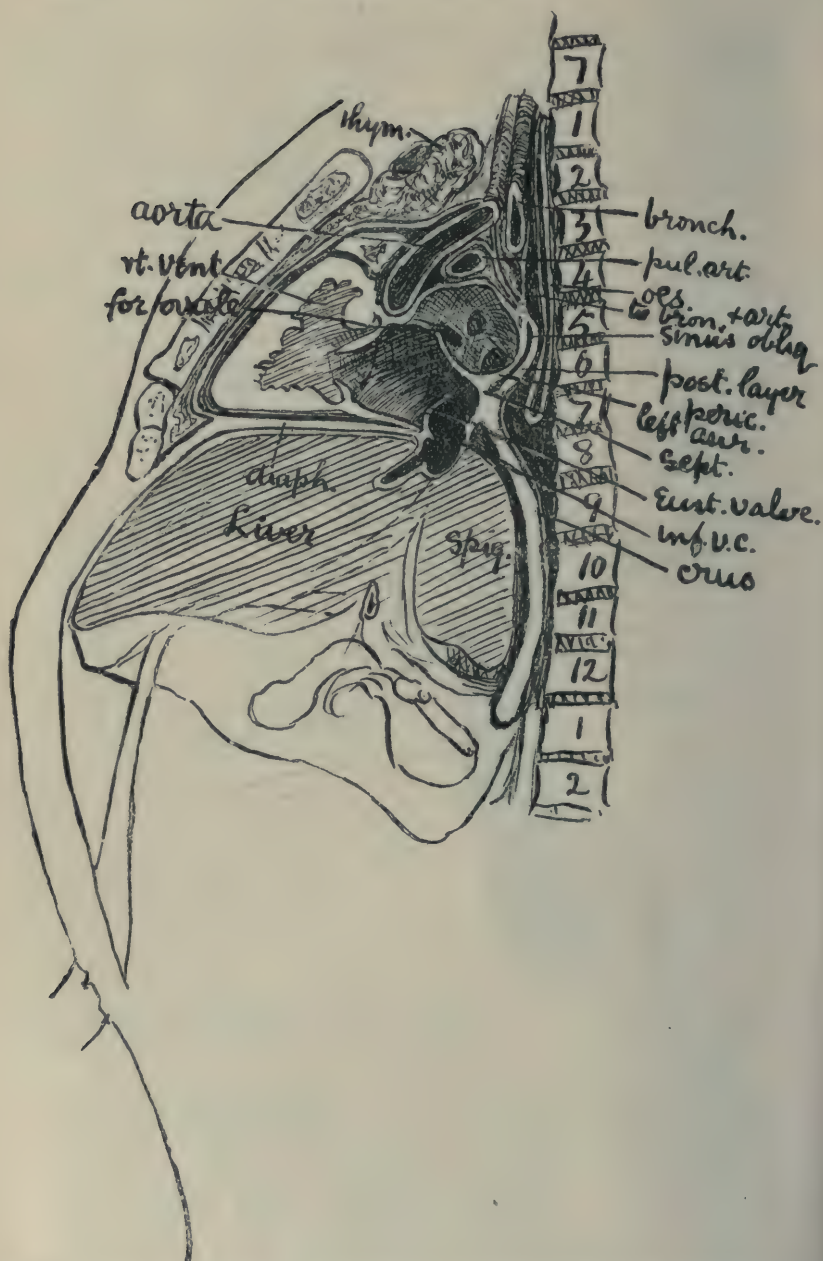 thym.
aorta
rt. vent
for. ovale
diaph.
Liver
Spig.
7
1
2
3
4
5
6
7
8
9
10
11
12
1
2
bronch.
pul. art.
oes.
bron. + art.
sinus obliq
post. layer
peric.
left aur.
sept.
Eust. valve.
inf. v. c.
crus